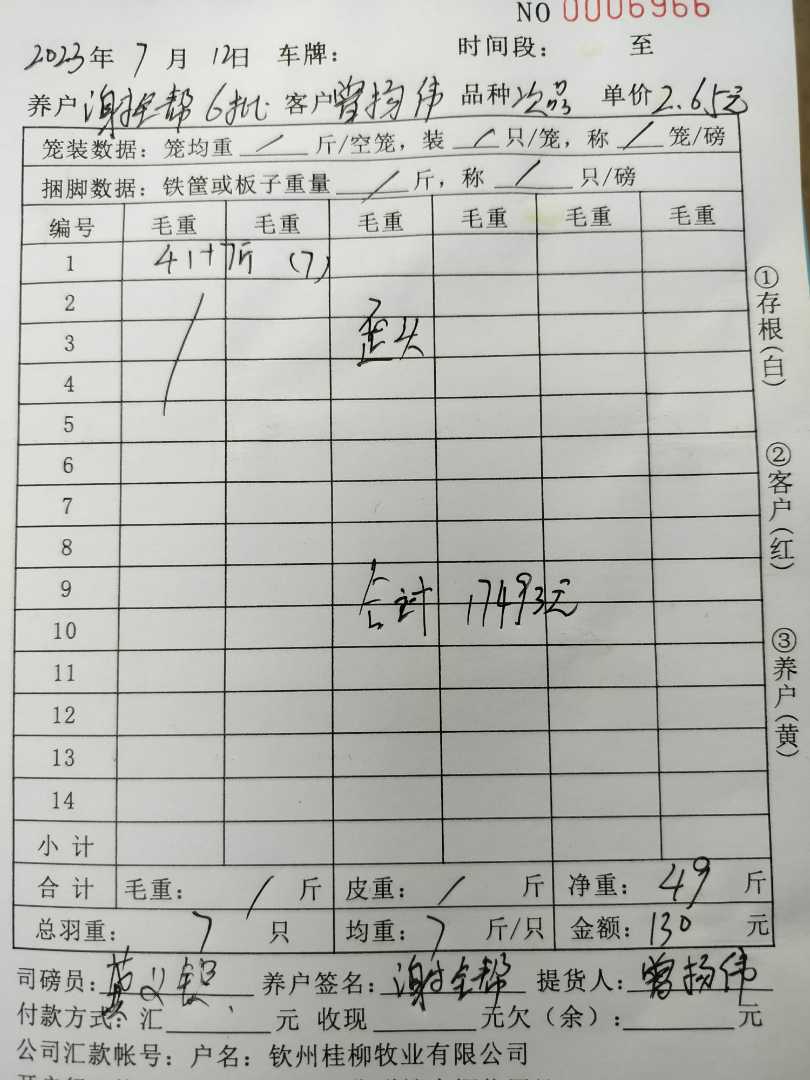 NO 0006966
2023年 7月 12日 车牌： 时间段： 至
养户 谢全帮 6批 客户 曾扬伟 品种 次品 单价 2.65元
笼装数据：笼均重 / 斤/空笼，装 / 只/笼，称 / 笼/磅
捆脚数据：铁筐或板子重量 / 斤，称 / 只/磅
编号 毛重 毛重 毛重 毛重 毛重 毛重
1 (7)
2
3 歪头
4
5
6
7
8
9 合计 17493元
10
11
12
13
14
小 计
合 计 毛重： / 斤 皮重： / 斤 净重： 49 斤
总羽重： 7 只 均重： 7 斤/只 金额： 130 元
司磅员： 养户签名：谢全帮 提货人：曾扬伟
付款方式：汇 元 收现 元欠（余）： 元
公司汇款帐号：户名：钦州桂柳牧业有限公司
①存根（白）
②客户（红）
③养户（黄）